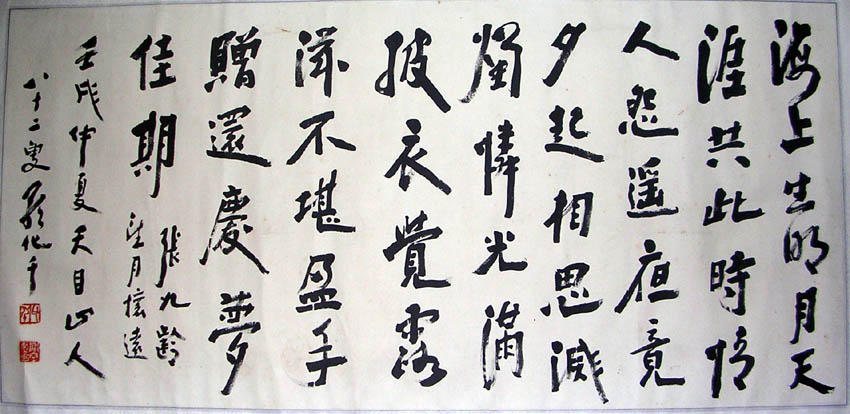 海上生明月天
涯共此時情
人怨遥夜竟
夕起相思滅
燭憐光滿
披衣覺露
滋不堪盈手
贈還慶夢
佳期
張九齡
望月懷遠
壬戌仲夏天目山人
八十二叟